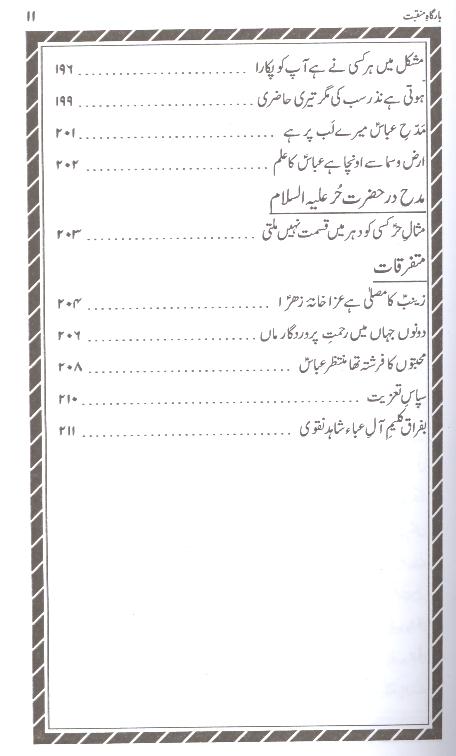 بارگاہِ منقبت ۱۱
مشکل میں ہر کسی نے ہے آپ کو پکارا ۱۹۶
ہوتی ہے نذر سب کی مگر تیری حاضری ۱۹۹
مَدحِ عباسؑ میرے لَب پر ہے ۲۰۱
ارض و سما سے اونچا ہے عباسؑ کا علم ۲۰۲
مدح در حضرت حُر علیہ السلام
مثالِ حُرؑ کسی کو دہر میں قسمت نہیں ملتی ۲۰۳
متفرقات
زینبؑ کا مصلیٰ ہے عزا خانۂ زھرؑا ۲۰۴
دونوں جہاں میں رحمتِ پروردگار ماں ۲۰۶
محبتوں کا فرشتہ تھا منتظر عباسؑ ۲۰۸
سپاسِ تعزیت ۲۱۰
بفراق کلیمِ آلِ عباء شاہد نقوی ۲۱۱